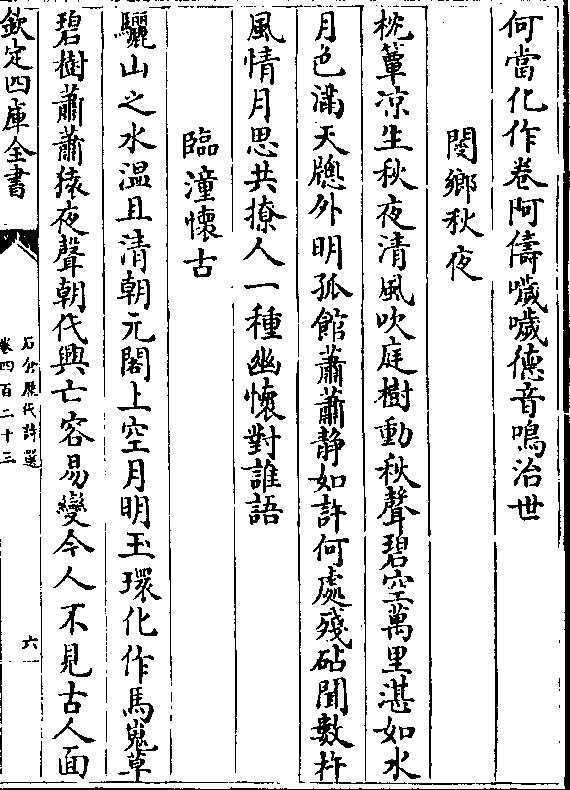 何當化作卷阿儔噦噦德音鳴治世
閿鄉秋夜
枕簟凉生秋夜清風吹庭樹動秋聲碧空萬里湛如水
月色滿天牕外明孤館蕭蕭静如許何處殘砧聞數杵
風情月思共撩人一種幽懷對誰語
臨潼懷古
驪山之水温且清朝元閣上空月明玉環化作馬嵬草
碧樹蕭蕭猿夜聲朝代興亡容易變今人不見古人面
欽定四庫全書
石倉歷代詩選
卷四百二十三
六